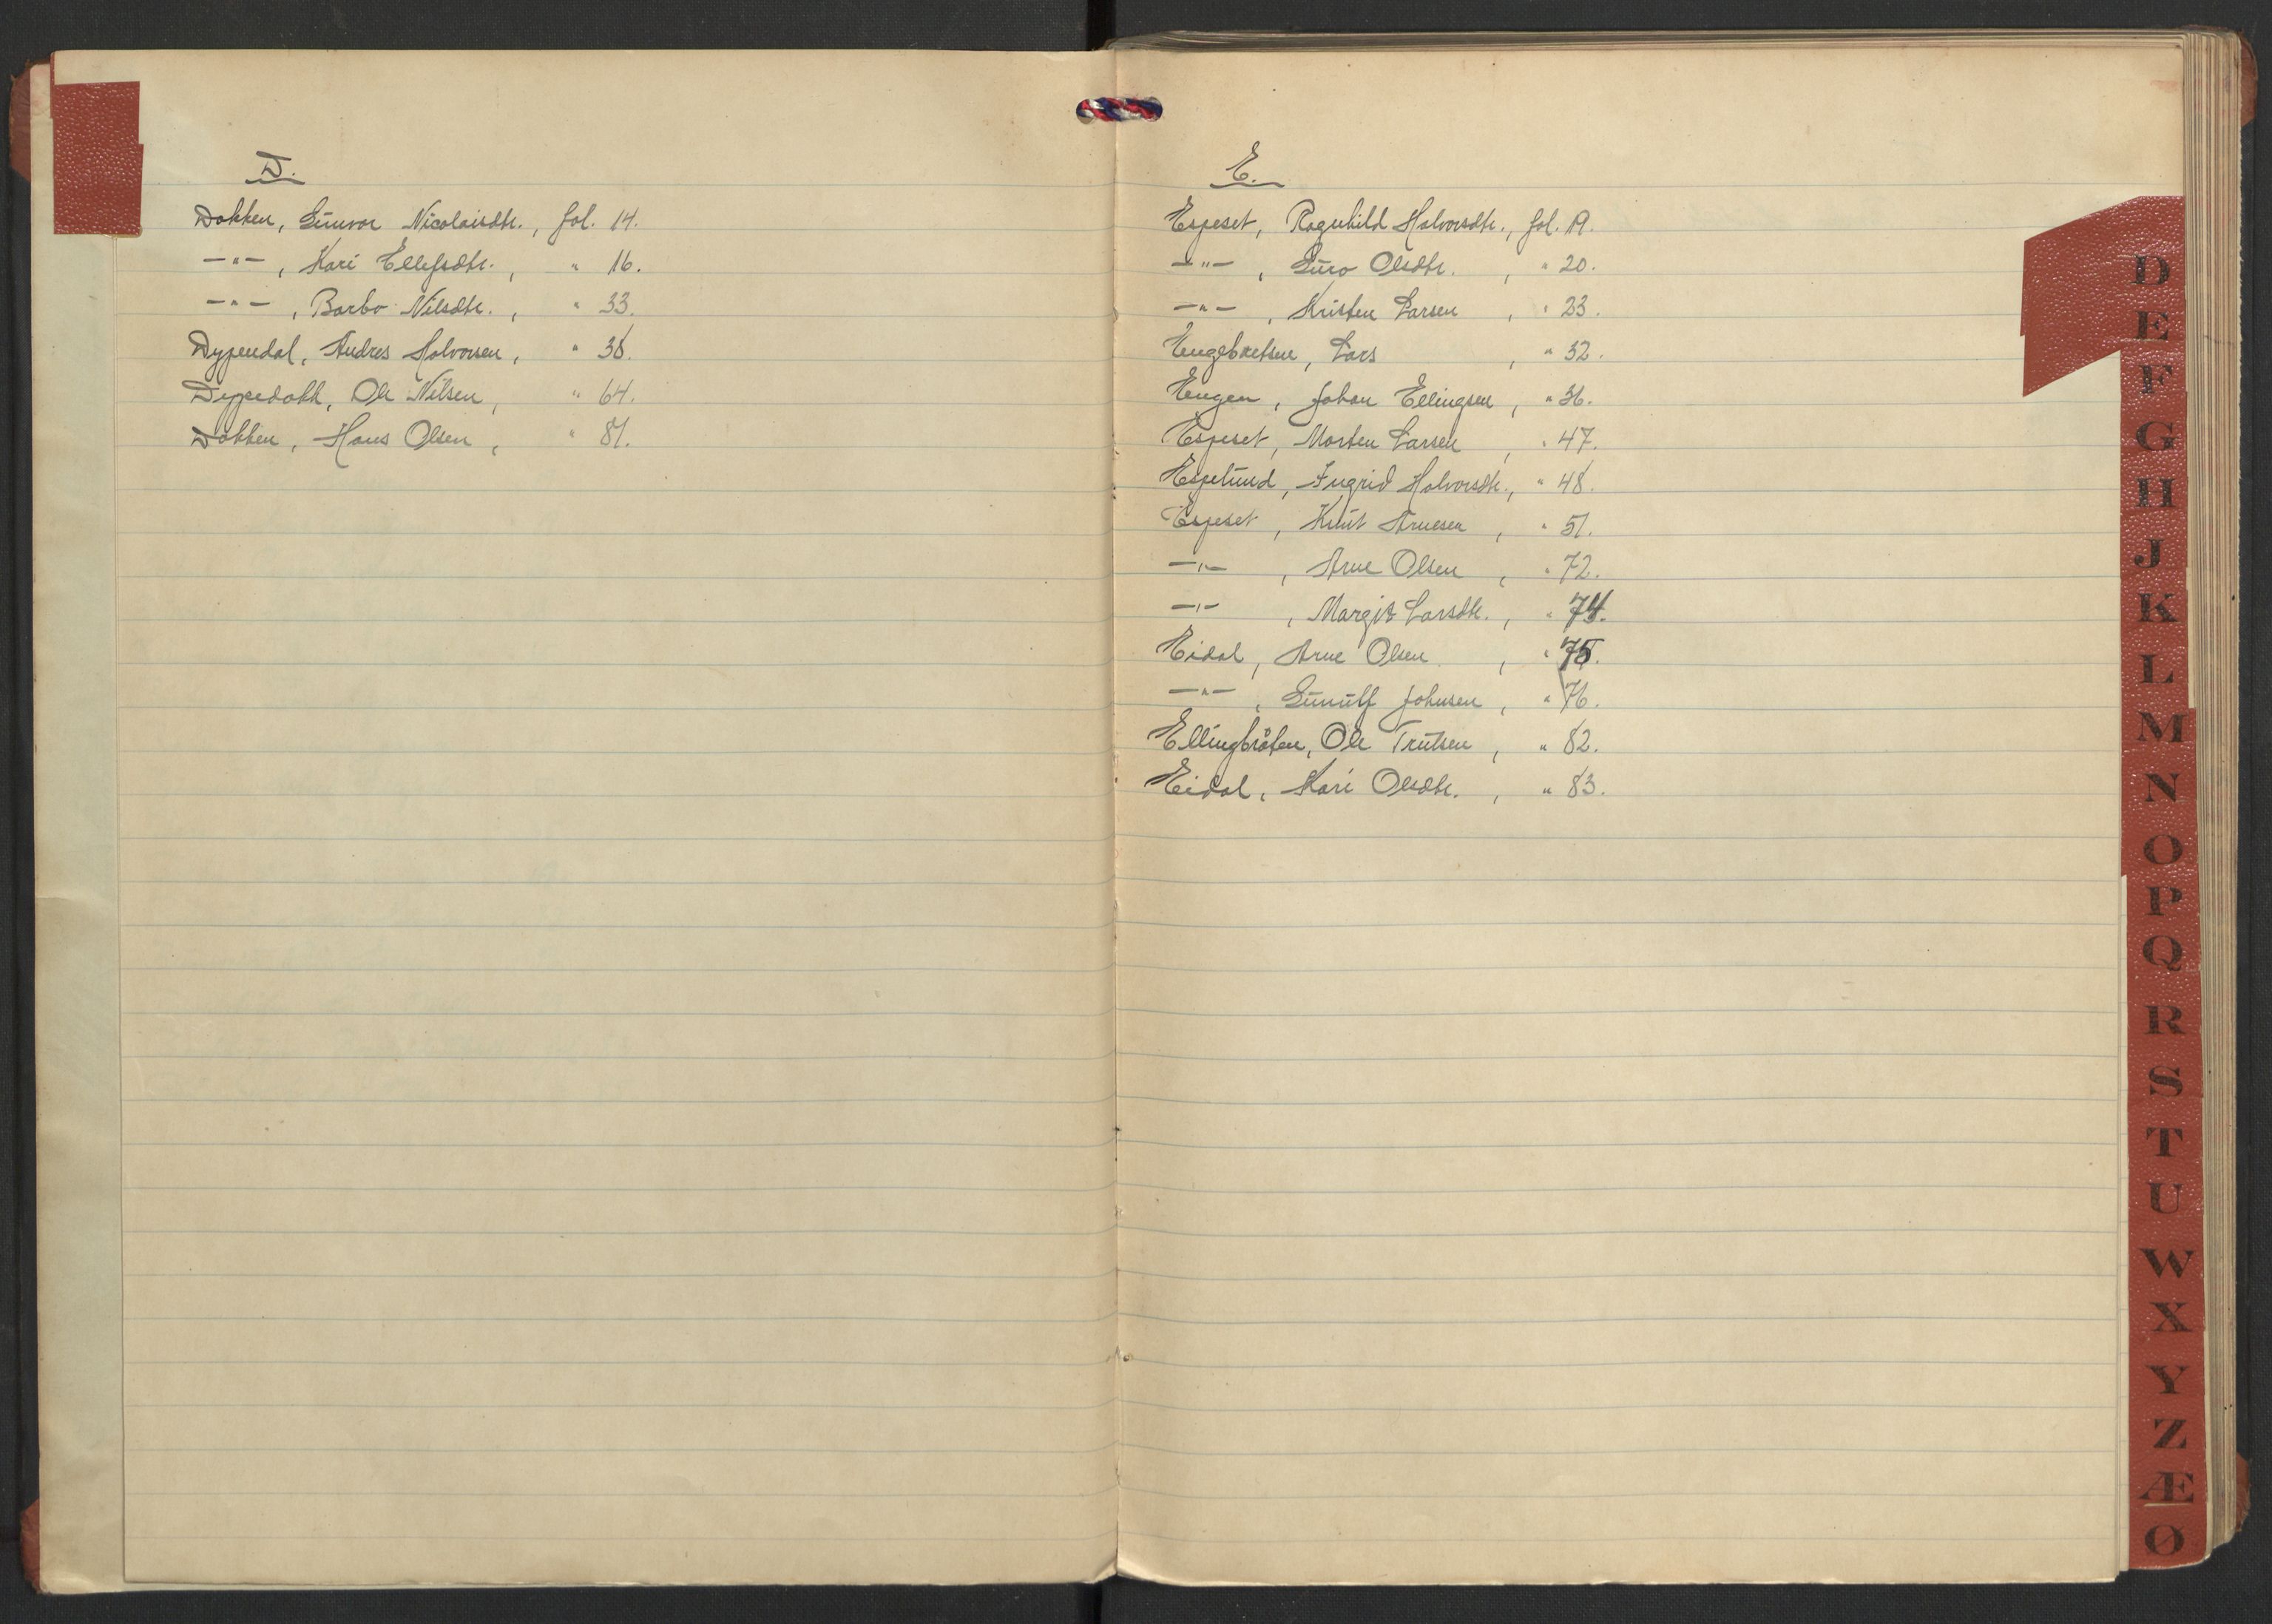 D.
Dokken, Gunvor Nicolaisdtr., fol. 14.
—"—, Kari Ellefsdtr., " 16.
—"—, Barbo Nilsdtr., " 33.
Dypendal, Andres Halvorsen, " 38.
Dypedokk, Ole Nilsen, " 64.
Dokken, Hans Olsen, " 81.
E.
Espeset, Ragnhild Halvorsdtr., fol. 19.
—"—, Guro Olsdtr., " 20.
—"—, Kristen Larsen, " 23.
Engebretsen, Lars, " 32.
Engen, Johan Ellingsen, " 36.
Espeset, Morten Larsen, " 47.
Espelund, Ingrid Halvorsdtr., " 48.
Espeset, Knut Arnesen, " 51.
—"—, Arne Olsen, " 72.
—"—, Margit Larsdtr., " 74.
Eidal, Arne Olsen, " 75.
—"—, Gunulf Johnsen, " 76.
Ellingbråten, Ole Trulsen, " 82.
Eidal, Kari Olsdtr., " 83.
D
E
F
G
H
J
K
L
M
N
O
P
Q
R
S
T
U
W
X
Y
Z
Æ
Ø